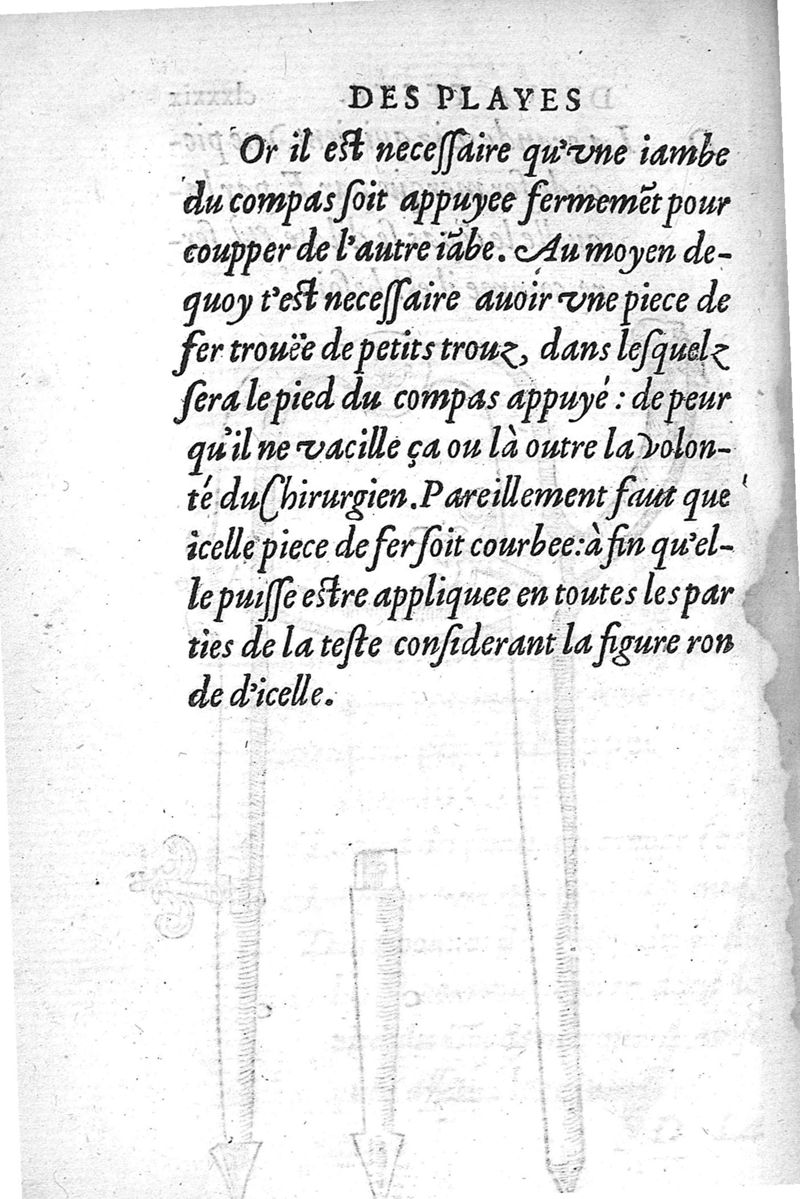 DES PLAYES
Or il eſt neceſſaire qu'vne iambe
du compas ſoit appuyee fermemẽt pour
coupper de l'autre iãbe. Au moyen de-
quoy t'eſt neceſſaire auoir vne piece de
fer trouëe de petits trouz, dans leſquelz
ſera le pied du compas appuyé : de peur
qu'il ne vacille ça ou là outre la volon-
té du Chirurgien. Pareillement faut que
icelle piece de fer ſoit courbee: à fin qu'el-
le puiſſe eſtre appliquee en toutes les par
ties de la teſte conſiderant la figure ron
de d'icelle.
clxxxix